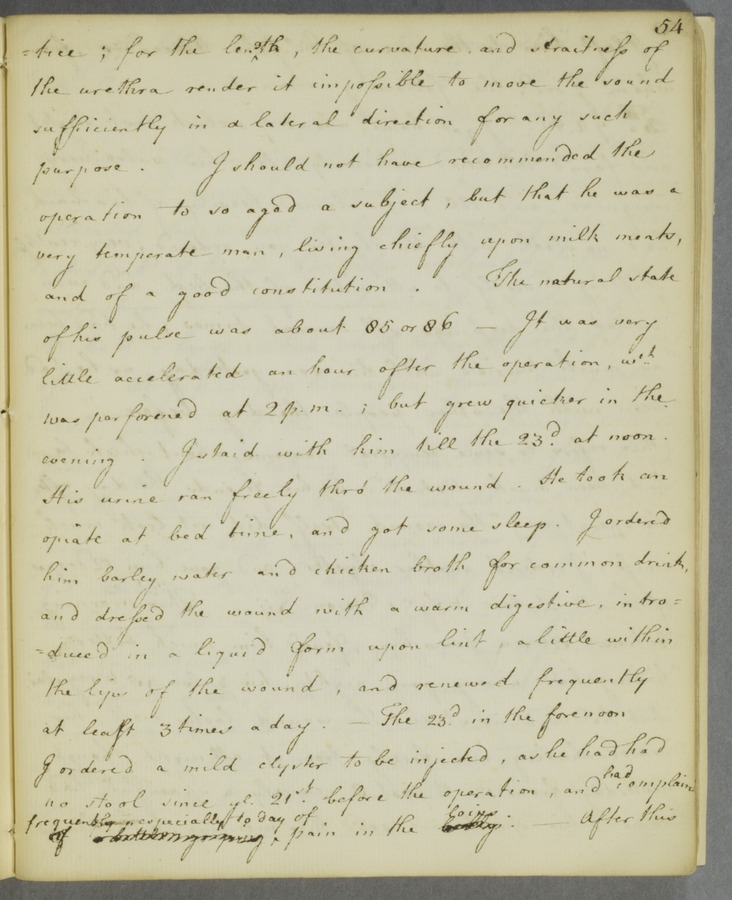 54
=tice ; for the length, the curvature and straitness of
the urethra render it impossible to move the sound
sufficiently in a lateral direction for any such
purpose. I should not have recommended the
operation to so aged a subject, but that he was a
very temperate man, living chiefly upon milk meats,
and of a good constitution. The natural state
of his pulse was about 85 or 86 — It was very
little accelerated an hour after the operation, wch
was performed at 2 p.m.; but grew quicker in the
evening. I staid with him till the 23d. at noon.
His urine ran freely thro' the wound. He took an
opiate at bed time, and got some sleep. I ordered
him barley water and chicken broth for common drink,
and dressed the wound with a warm digestive, intro=
=duced in a liquid form upon lint, a little within
the lips of the wound, and renewed frequently
at least 3 times a day. — The 23d. in the forenoon
I ordered a mild clyster to be injected, as he had had
no stool since ye. 21st. before the operation, and had complain
frequently especially to day of
of pain in the loins. — After this